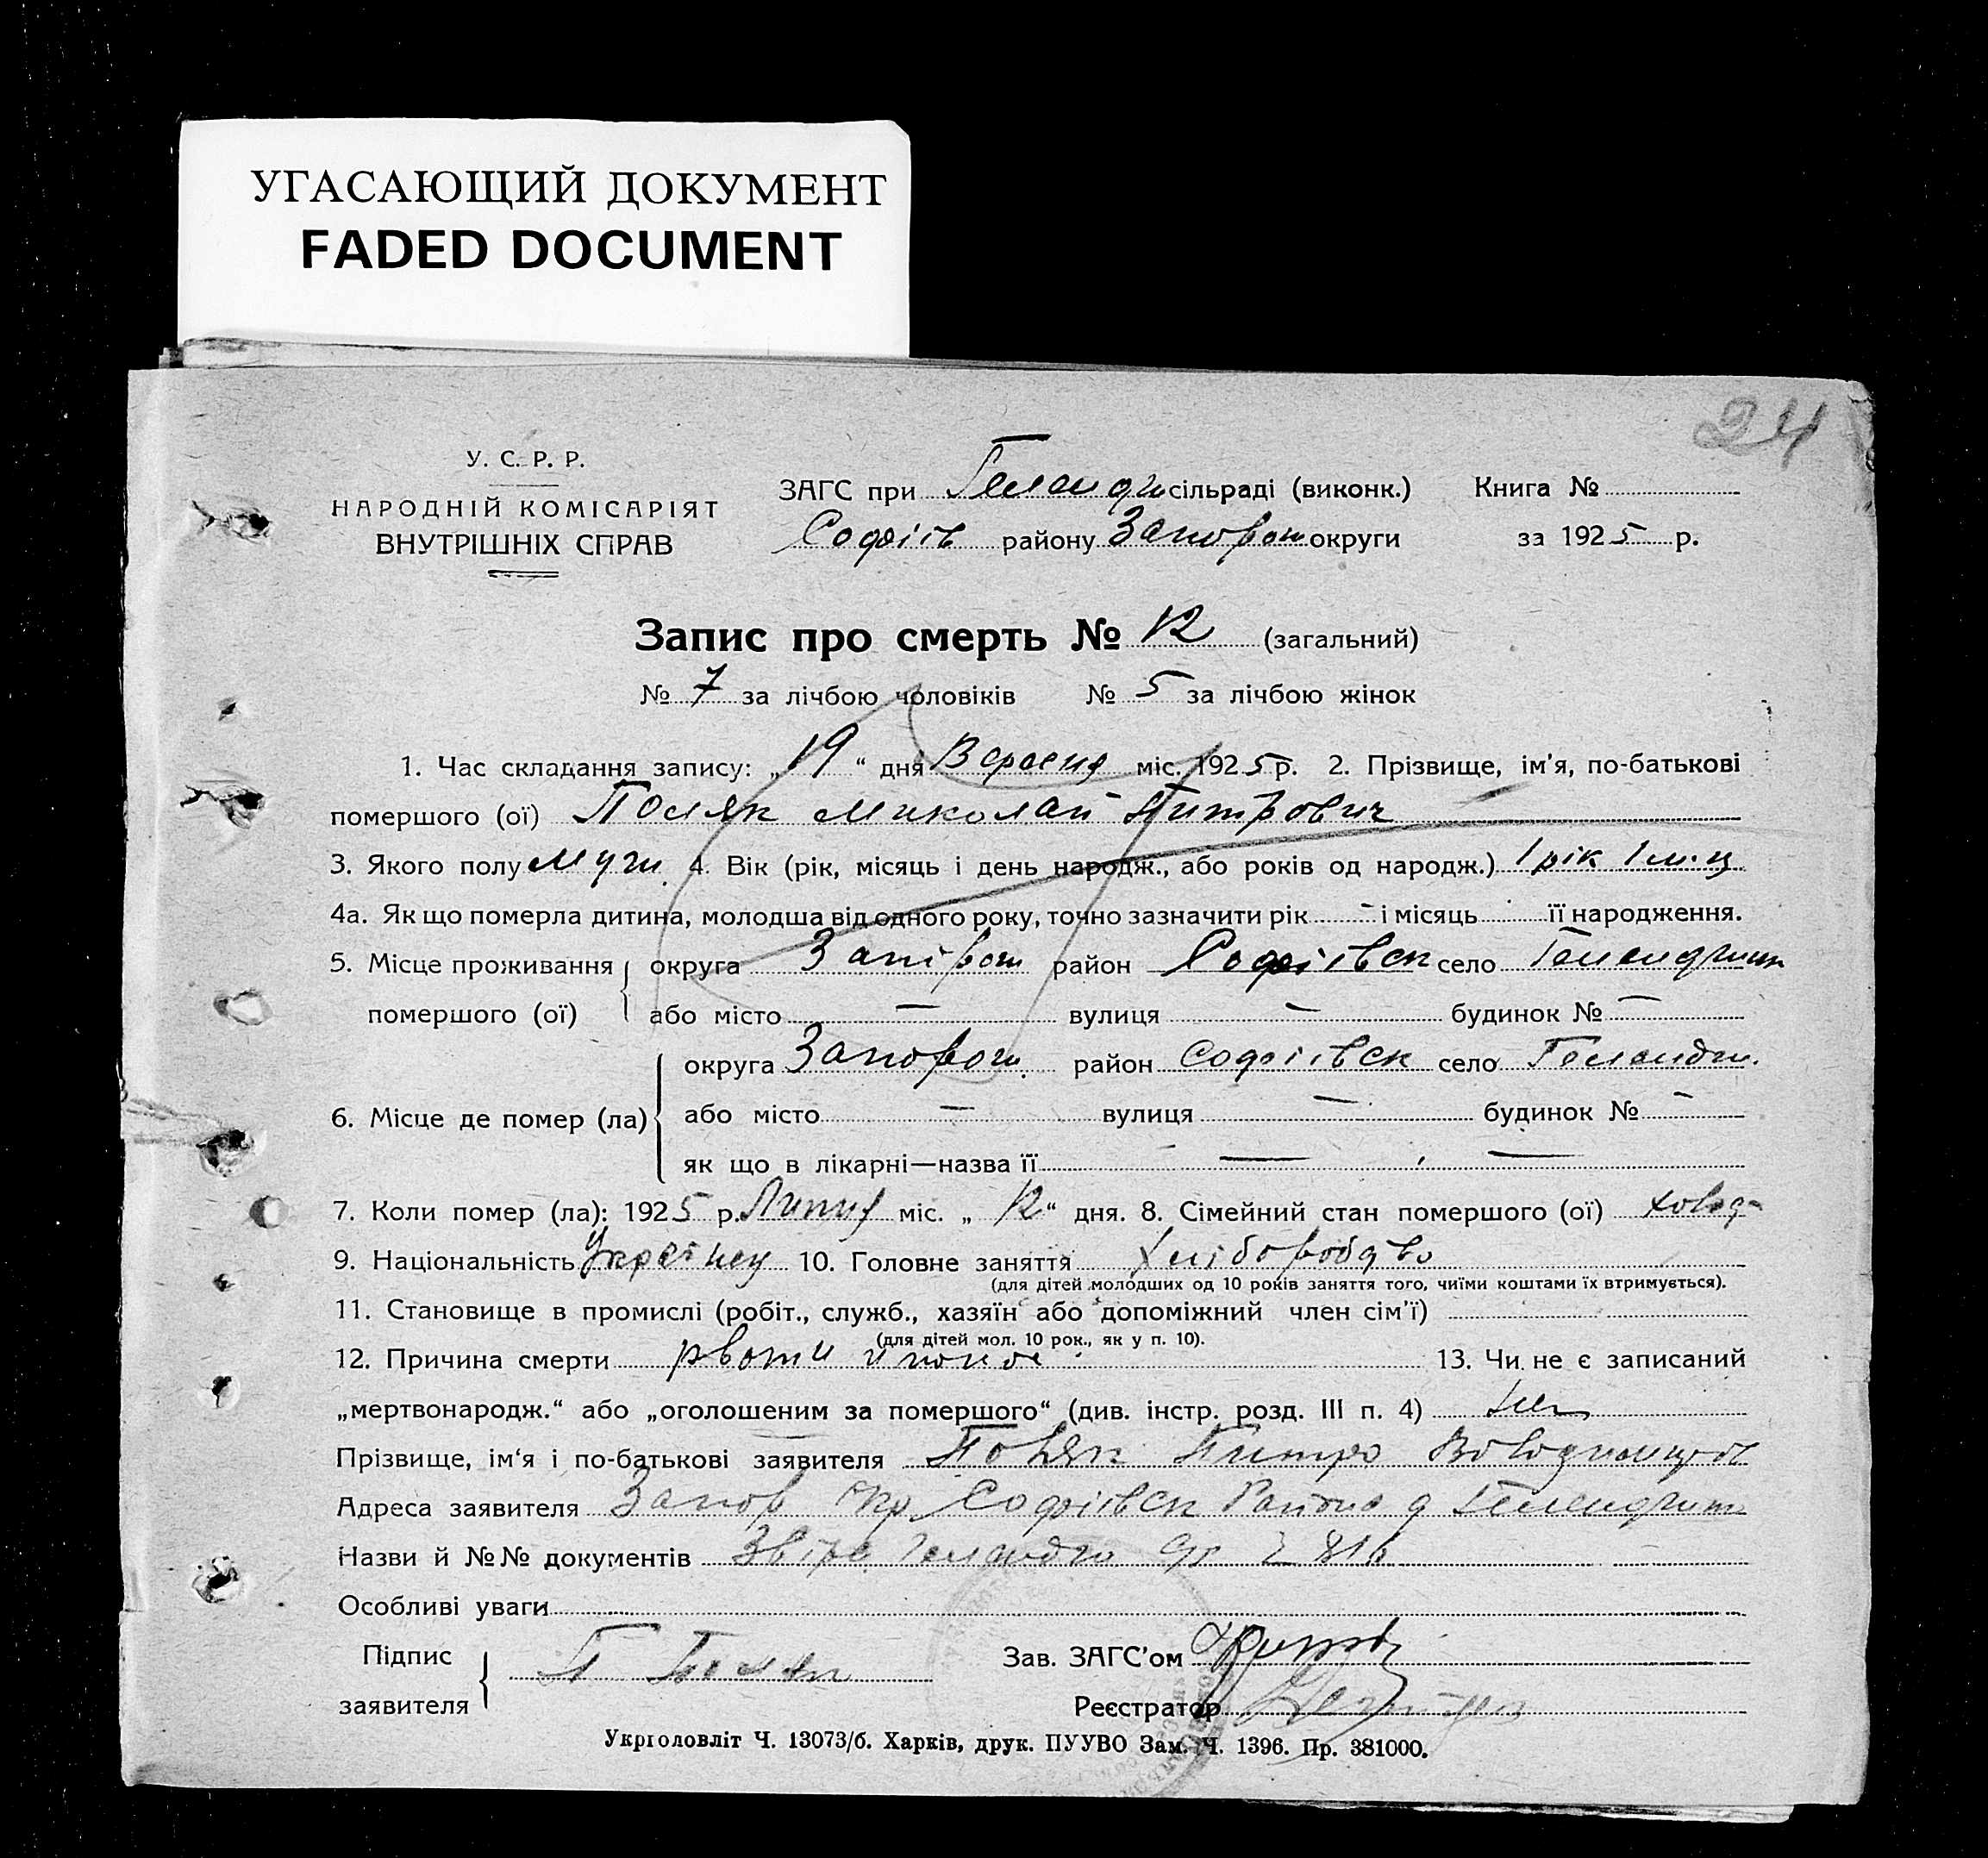 УГАСАЮЩИЙ ДОКУМЕНТ
FADED DOCUMENT
24
У. С. Р. Р.
НАРОДНІЙ КОМІСАРІЯТ
ВНУТРІШНІХ СПРАВ
ЗАГС при Геленджи сільраді (виконк.) Книга №
Софіїв району Запорож округи за 1925 р.
Запис про смерть № 12 (загальний)
№ 7 за лічбою чоловіків № 5 за лічбою жінок
1. Час складання запису: „19“ дня Вересня міс. 1925 р. 2. Прізвище, ім'я, по-батькові
помершого (ої) Поляк Миколай Питрович
3. Якого полу муж. 4. Вік (рік, місяць і день народж., або років од народж.) 1 рік 1 м-ц
4а. Як що померла дитина, молодша від одного року, точно зазначити рік – і місяць її народження.
5. Місце проживання помершого (ої) округа Запірож район Софіївск село
або місто — вулиця — будинок № —
6. Місце де помер (ла) округа Запорож. район Софіївск село Геландж.
або місто — вулиця — будинок № —
як що в лікарні—назва її — —
7. Коли помер (ла): 1925 р. Липня міс. „12“ дня. 8. Сімейний стан помершого (ої)
9. Національність Українец 10. Головне заняття Хліборобство
(для дітей молодших од 10 років заняття того, чиїми коштами їх втримується).
11. Становище в промислі (робіт., служб., хазяїн або допоміжний член сім'ї)
(для дітей мол. 10 рок., як у п. 10).
12. Причина смерти рвоти и понос 13. Чи не є записаний
„мертвонародж.“ або „оголошеним за помершого“ (див. інстр. розд. III п. 4) Не
Прізвище, ім'я і по-батькові заявителя Поляк Питро
Адреса заявителя Запор Окр Софіївск Району
Назви й №№ документів
Особливі уваги
Підпис заявителя П Поляк Зав. ЗАГС'ом
Реєстратор
Укрголовліт Ч. 13073/б. Харків, друк. ПУУВО Зам. Ч. 1396. Пр. 381000.